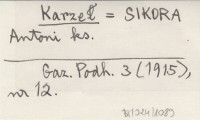 Karzeł = SIKORA
Antoni ks.
Gaz. Podh. 3 (1915),
nr 12.